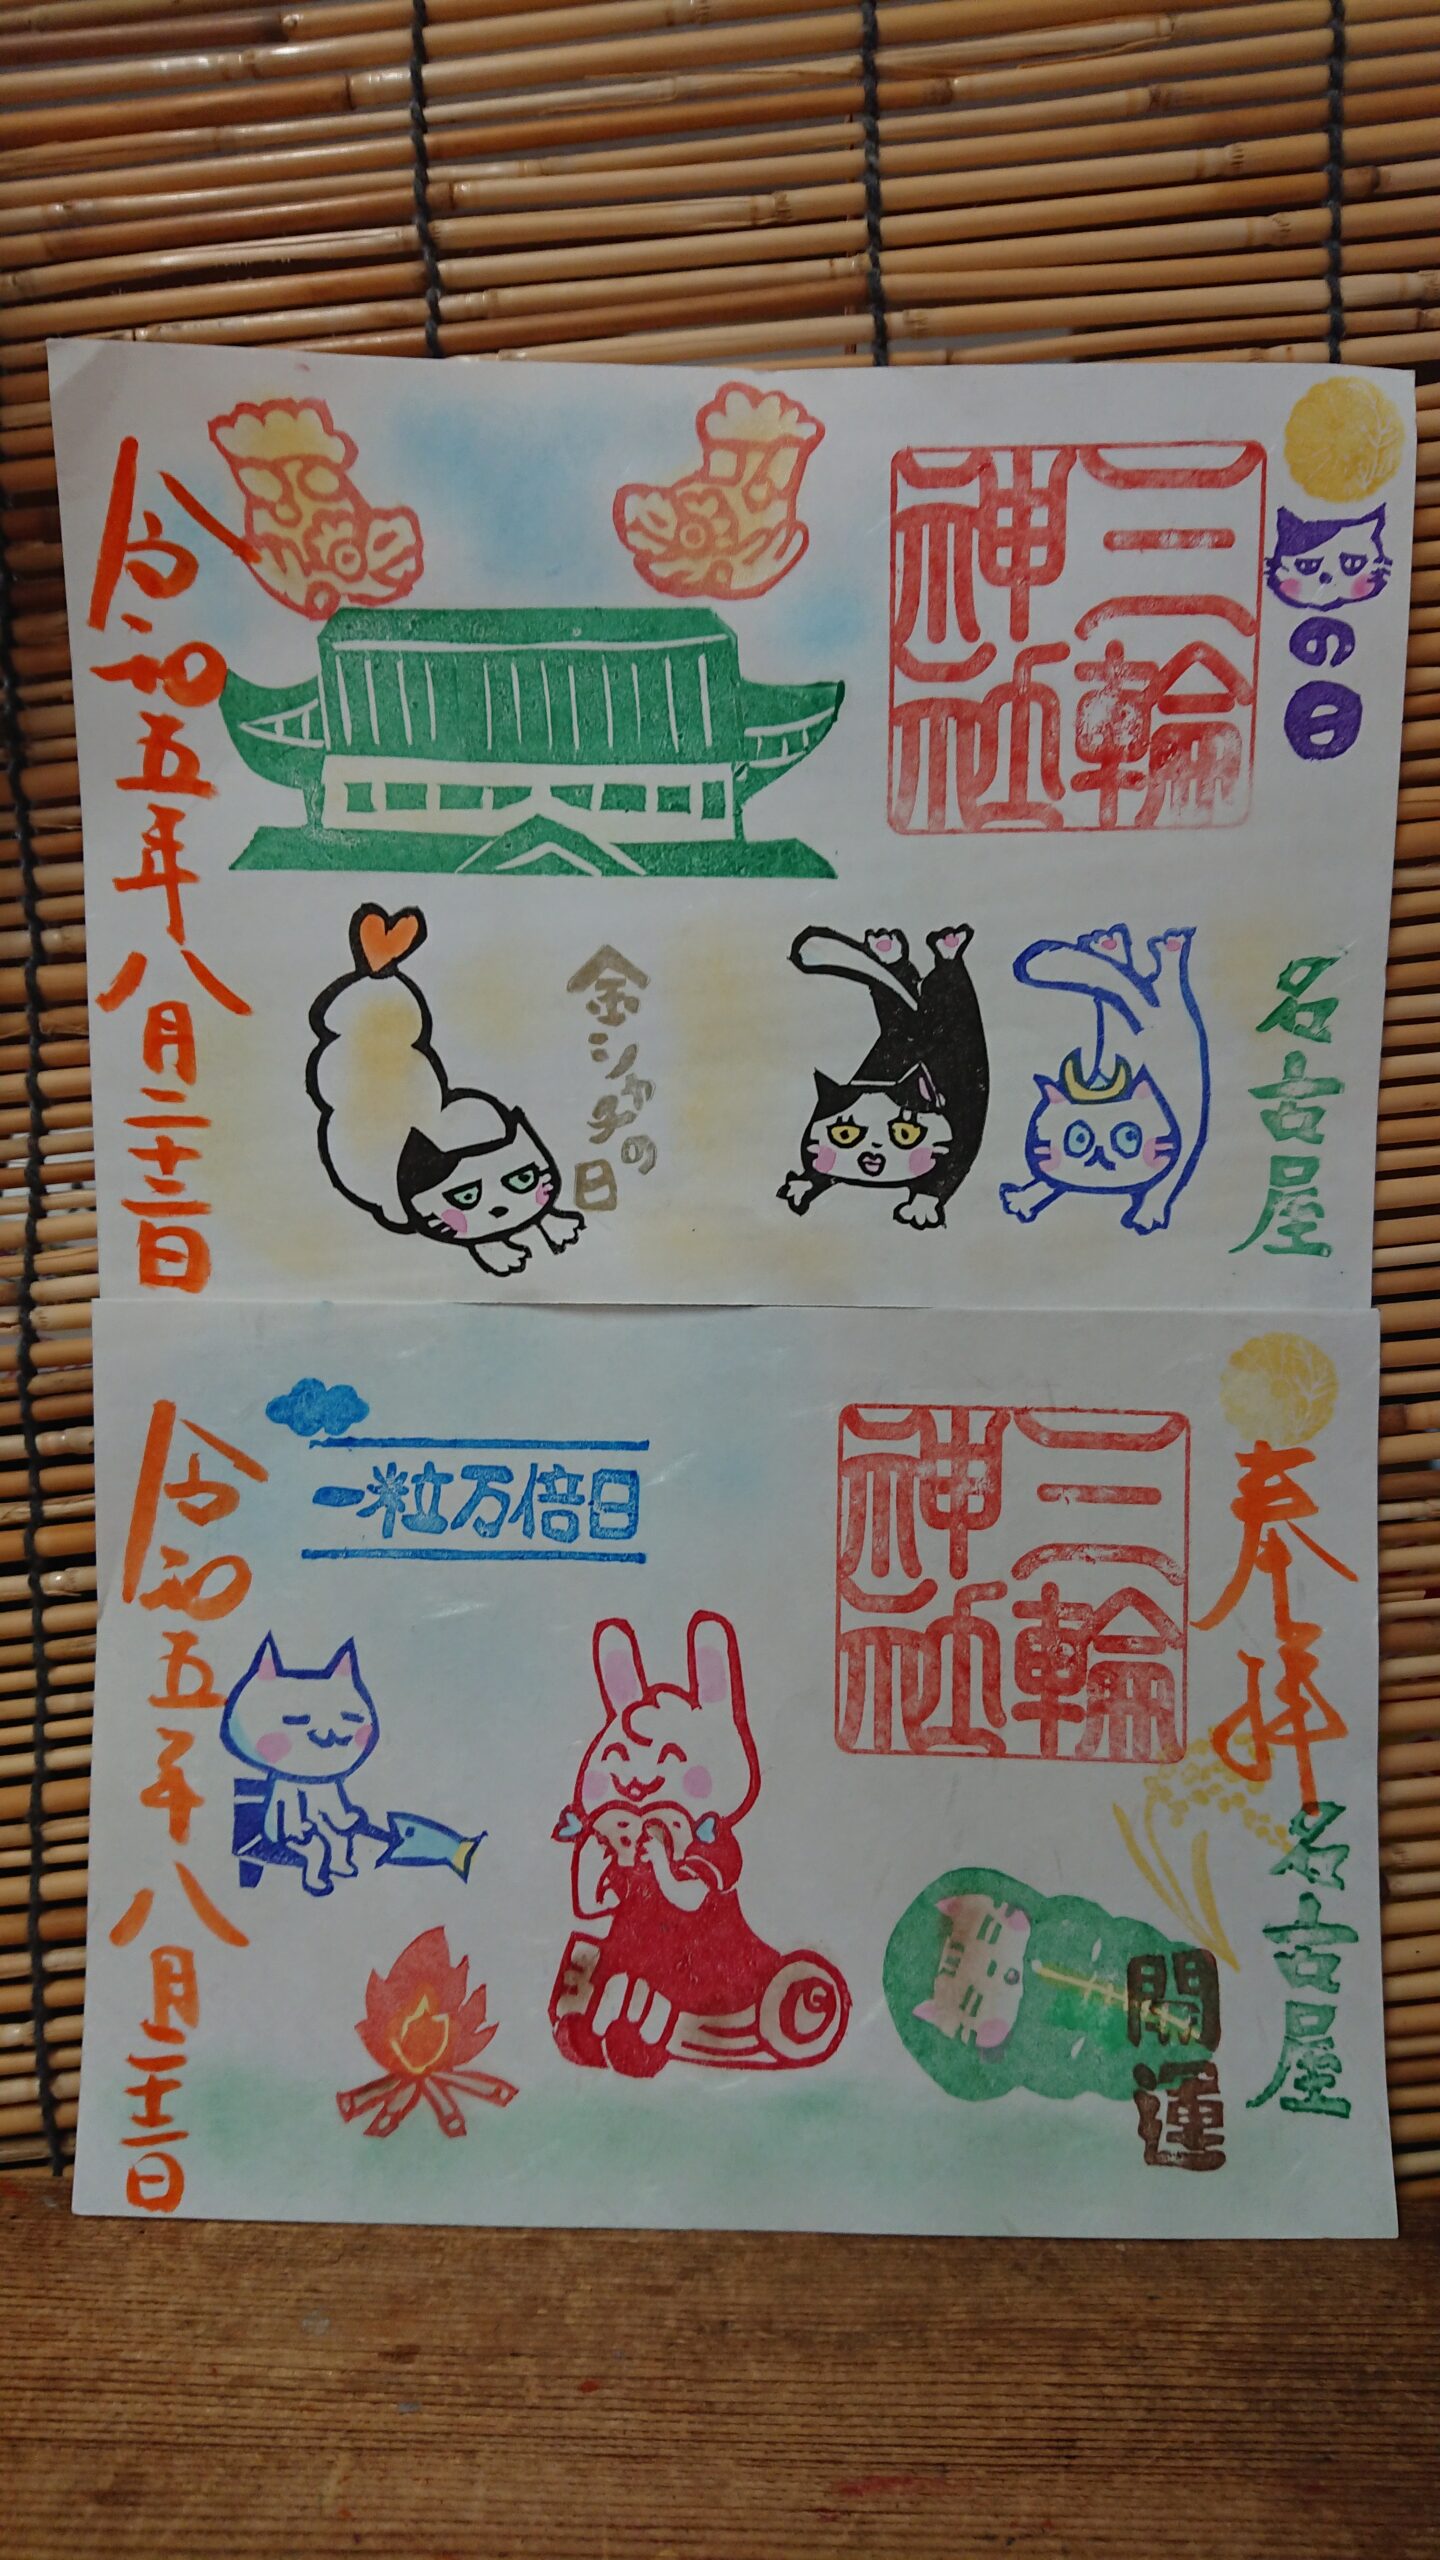 の日
三輪
神社
名古屋
金シャチの日
令和五年八月二十二日
奉拝
三輪
神社
名古屋
開運
一粒万倍日
令和五年八月二十二日